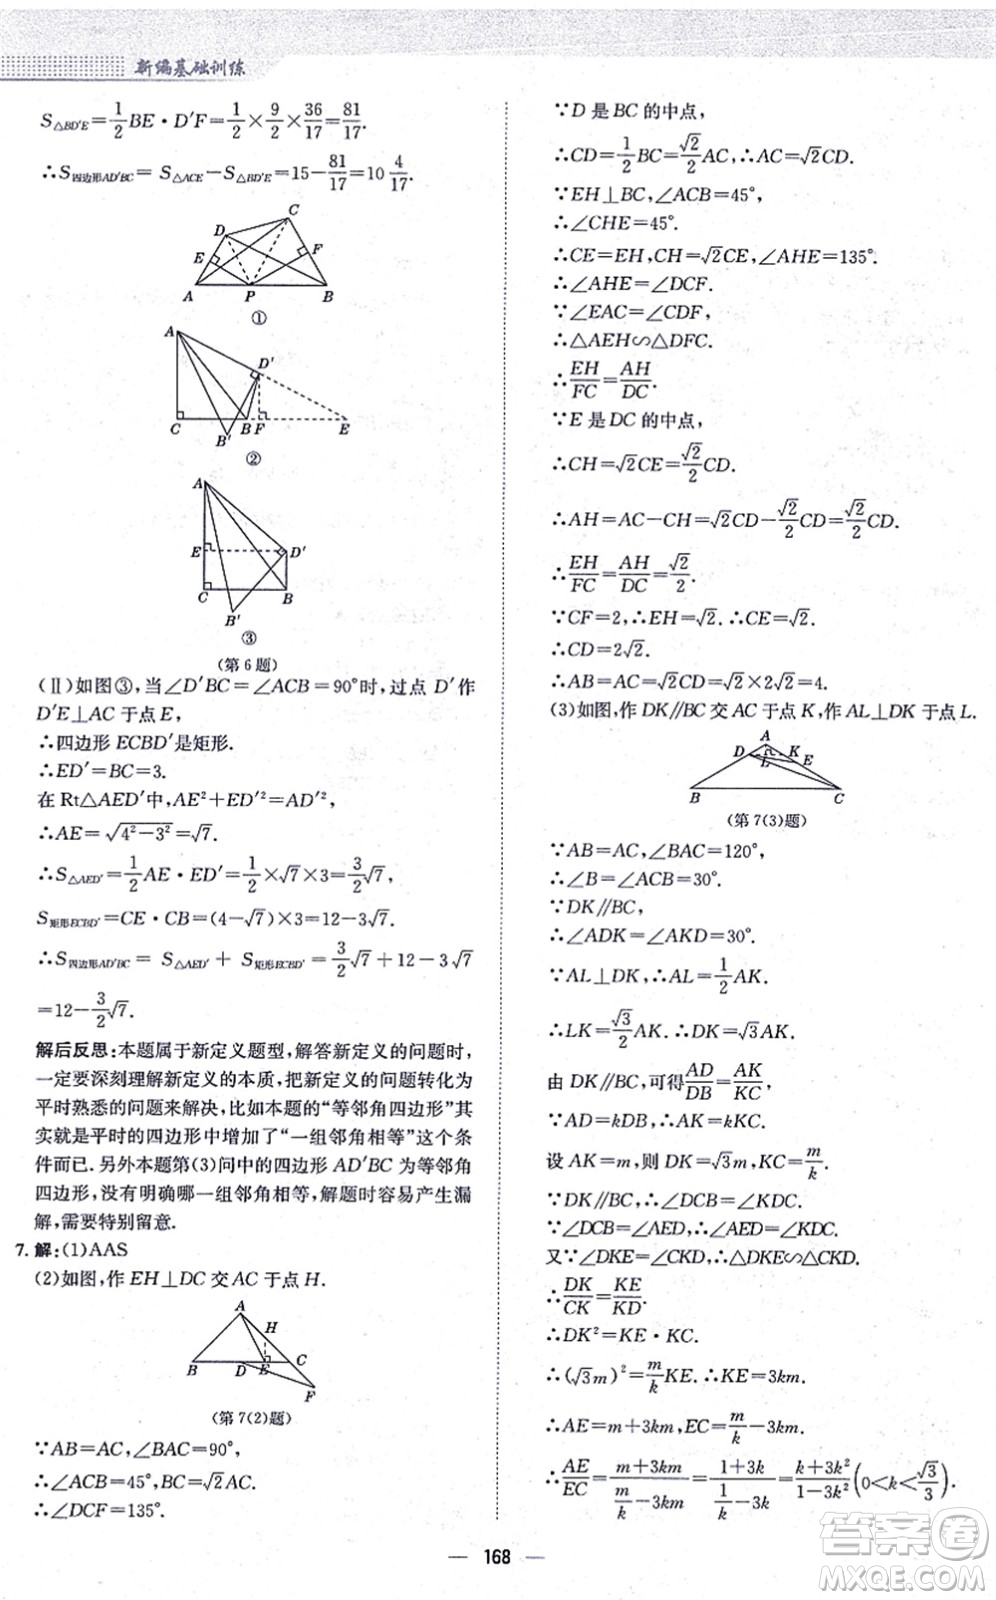 新编基础训练
S△BD′E=1/2BE·D′F=1/2×9/2×36/17=81/17.
∴S四边形AD′BC=S△ACE−S△BD′E=15−81/17=10 4/17.
D C E F A P B
①
A D′ C B F E B′
②
A E D′ C B B′
③
(第6题)
(Ⅱ)如图③,当∠D′BC=∠ACB=90°时,过点D′作
D′E⊥AC于点E,
∴四边形ECBD′是矩形.
∴ED′=BC=3.
在Rt△AED′中,AE²+ED′²=AD′²,
∴AE=√(4²−3²)=√7.
∴S△AED′=1/2AE·ED′=1/2×√7×3=3/2√7,
S矩形ECBD′=CE·CB=(4−√7)×3=12−3√7.
∴S四边形AD′BC=S△AED′+S矩形ECBD′=3/2√7+12−3√7
=12−3/2√7.
解后反思:本题属于新定义题型,解答新定义的问题时,
一定要深刻理解新定义的本质,把新定义的问题转化为
平时熟悉的问题来解决,比如本题的“等邻角四边形”其
实就是平时的四边形中增加了“一组邻角相等”这个条
件而已.另外本题第(3)问中的四边形AD′BC为等邻角
四边形,没有明确哪一组邻角相等,解题时容易产生漏
解,需要特别留意.
7.解:(1)AAS
(2)如图,作EH⊥DC交AC于点H.
A H B D E C F
(第7(2)题)
∵AB=AC,∠BAC=90°,
∴∠ACB=45°,BC=√2AC.
∴∠DCF=135°.
∵D是BC的中点,
∴CD=1/2BC=√2/2AC,∴AC=√2CD.
∵EH⊥BC,∠ACB=45°,
∴∠CHE=45°.
∴CE=EH,CH=√2CE,∠AHE=135°.
∴∠AHE=∠DCF.
∵∠EAC=∠CDF,
∴△AEH∽△DFC.
∴EH/FC=AH/DC.
∵E是DC的中点,
∴CH=√2CE=√2/2CD.
∴AH=AC−CH=√2CD−√2/2CD=√2/2CD.
∴EH/FC=AH/DC=√2/2.
∵CF=2,∴EH=√2.∴CE=√2.
∴CD=2√2.
∴AB=AC=√2CD=√2×2√2=4.
(3)如图,作DK∥BC交AC于点K,作AL⊥DK于点L.
A D K L E B C
(第7(3)题)
∵AB=AC,∠BAC=120°,
∴∠B=∠ACB=30°.
∵DK∥BC,
∴∠ADK=∠AKD=30°.
∵AL⊥DK,∴AL=1/2AK.
∴LK=√3/2AK.∴DK=√3AK.
由DK∥BC,可得AD/DB=AK/KC.
∵AD=kDB,∴AK=kKC.
设AK=m,则DK=√3m,KC=m/k.
∵DK∥BC,∴∠DCB=∠KDC.
∵∠DCB=∠AED,∴∠AED=∠KDC.
又∵∠DKE=∠CKD,∴△DKE∽△CKD.
∴DK/CK=KE/KD.
∴DK²=KE·KC.
∴(√3m)²=m/kKE.∴KE=3km.
∴AE=m+3km,EC=m/k−3km.
∴AE/EC=(m+3km)/(m/k−3km)=(1+3k)/(1/k−3k)=(k+3k²)/(1−3k²)(0<k<√3/3).
— 168 —
答案卷
MXQE.COM